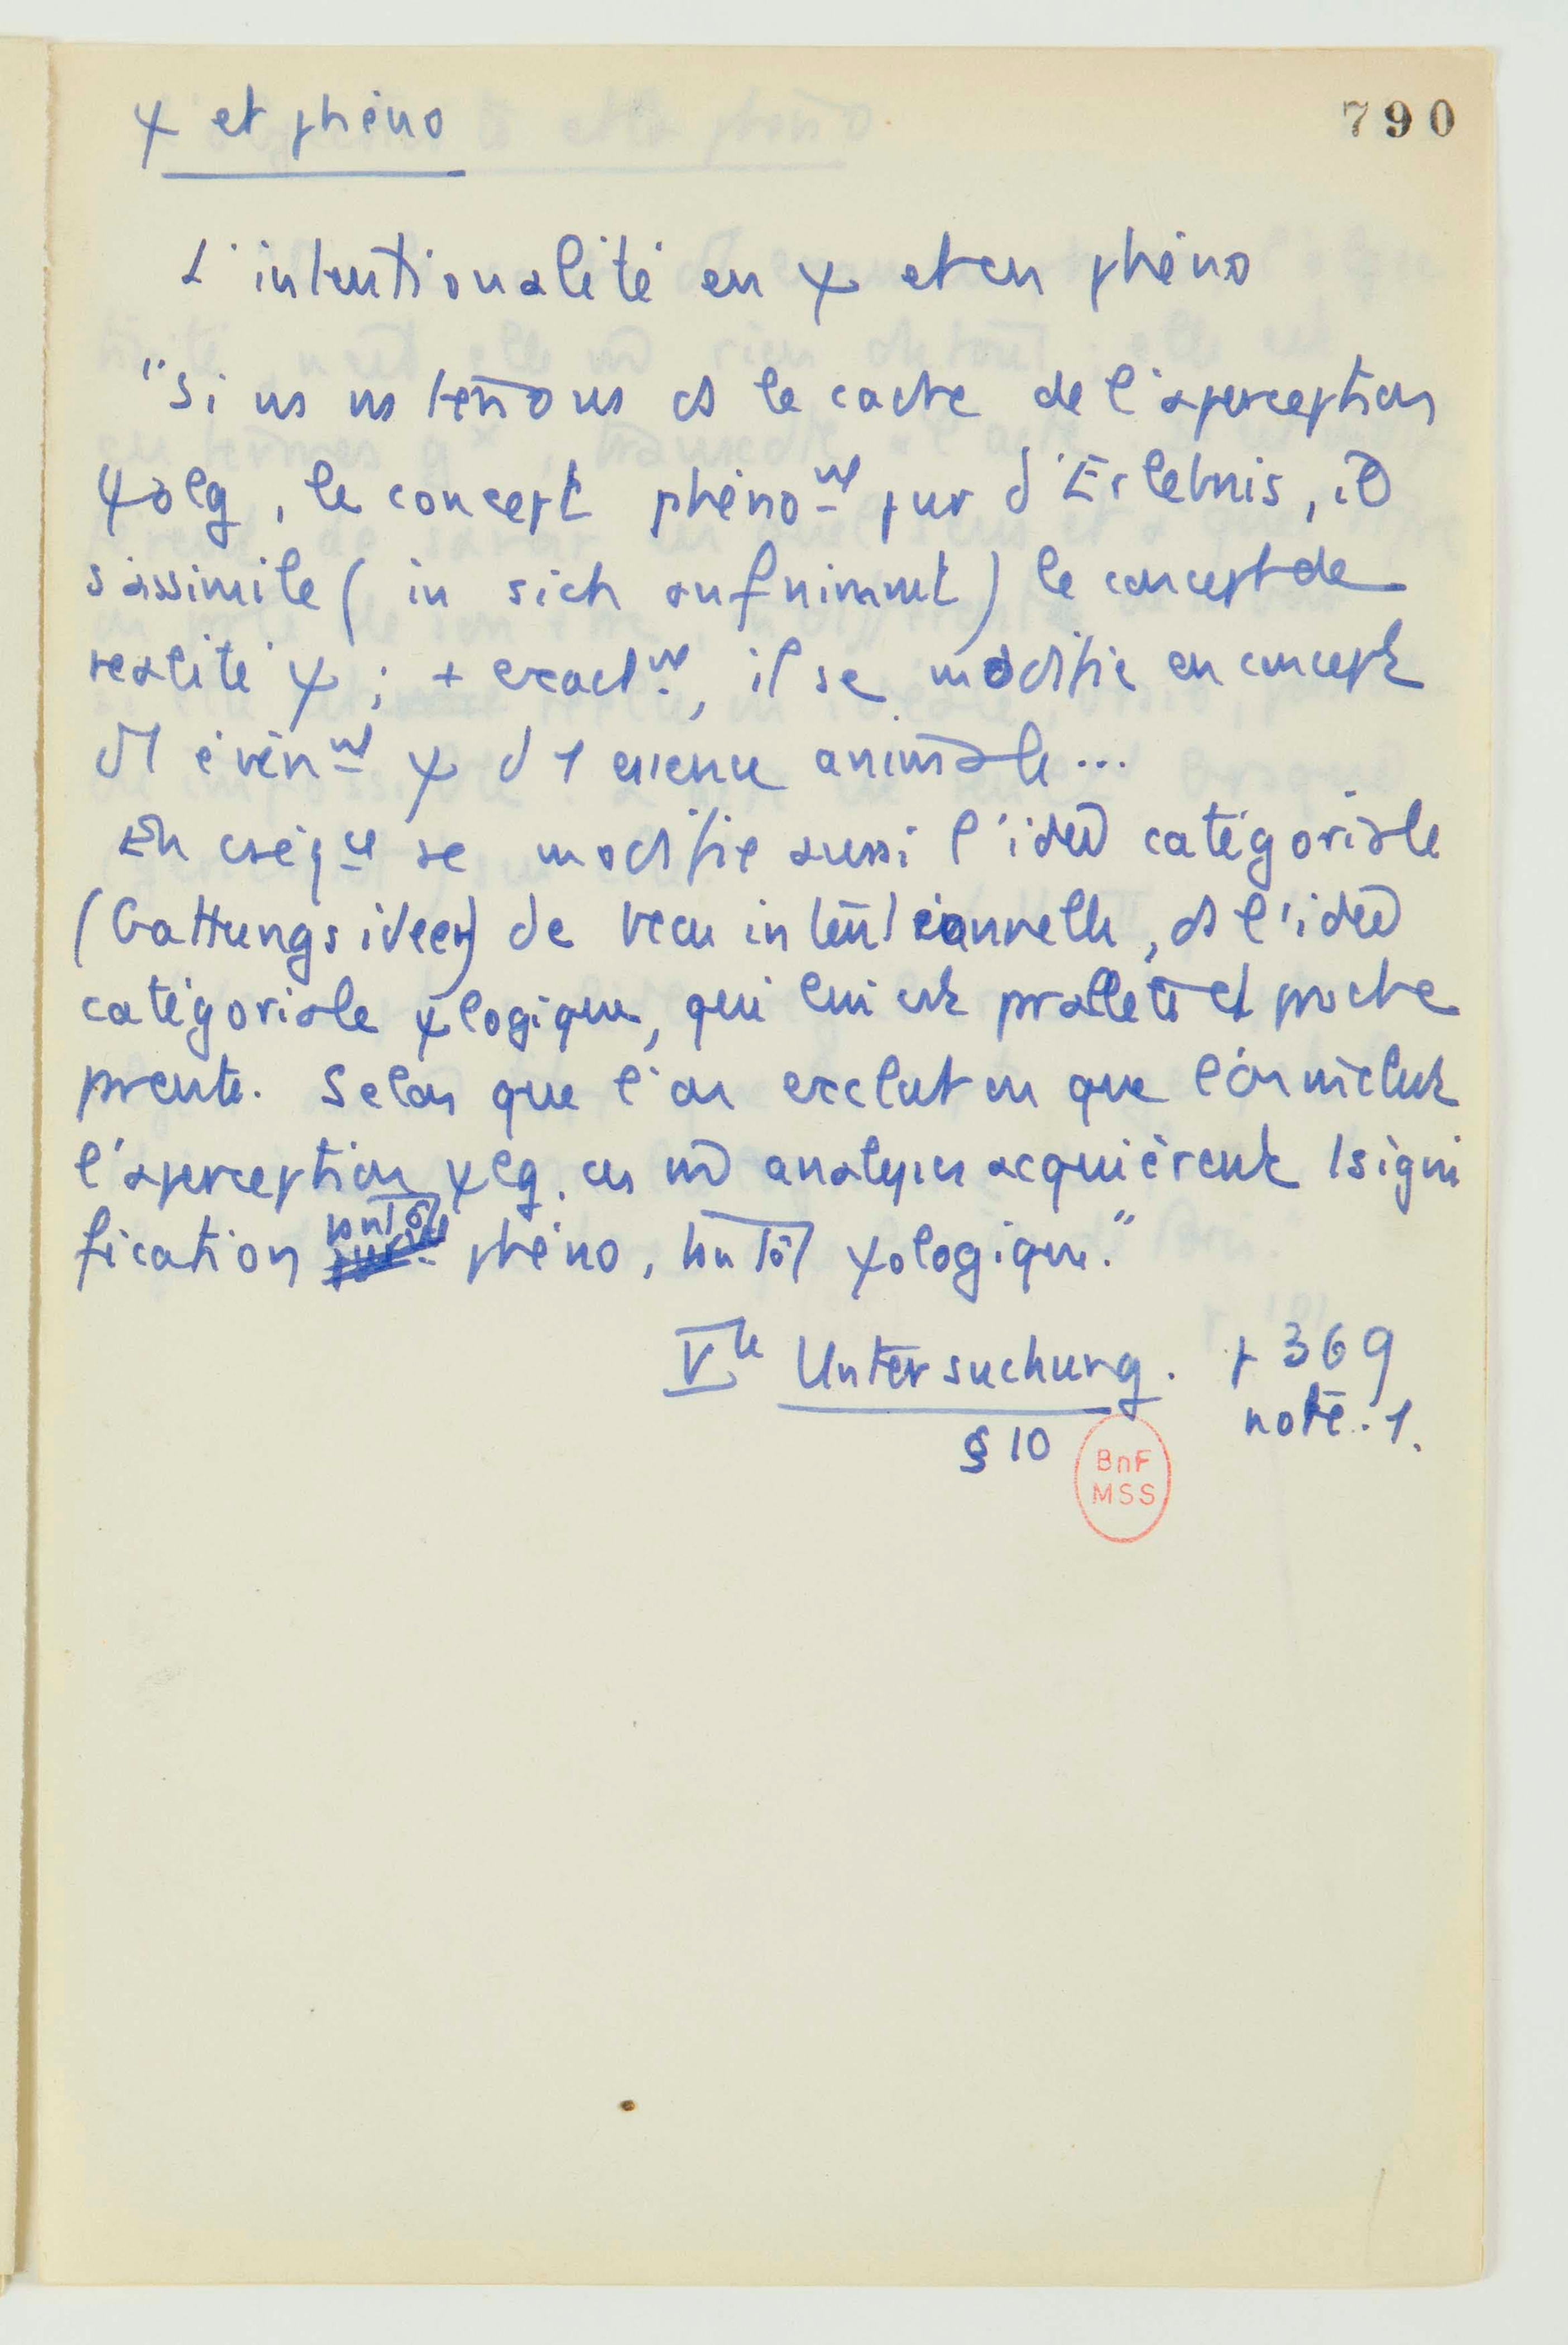 790
ψ et phéno
L'intentionalité en ψ et en phéno
"Si ns ns tenons ds le cadre de l'aperception
ψolg, le concept phéno^nl pur d'Erlebnis, il
s'assimile (in sich aufnimmt) le concept de
réalité ψ ; + exact^nt, il se modifie en concept
d'1 évén^nt ψ d'1 essence animale...
En cséq^ce se modifie aussi l'idée catégoriale
(Gattungsideen) de vécu intentionnelle, ds l'idée
catégoriale ψlogique, qui lui est prallèle et proche
prente. Selon que l'on exclut ou que l'on inclut
l'aperception ψlg. ces m̂ analyses acquièrent 1 signi
fication tantôt phéno, tantôt ψologique."
V^te Untersuchung. p 369
§ 10 note. 1.
BnF
MSS